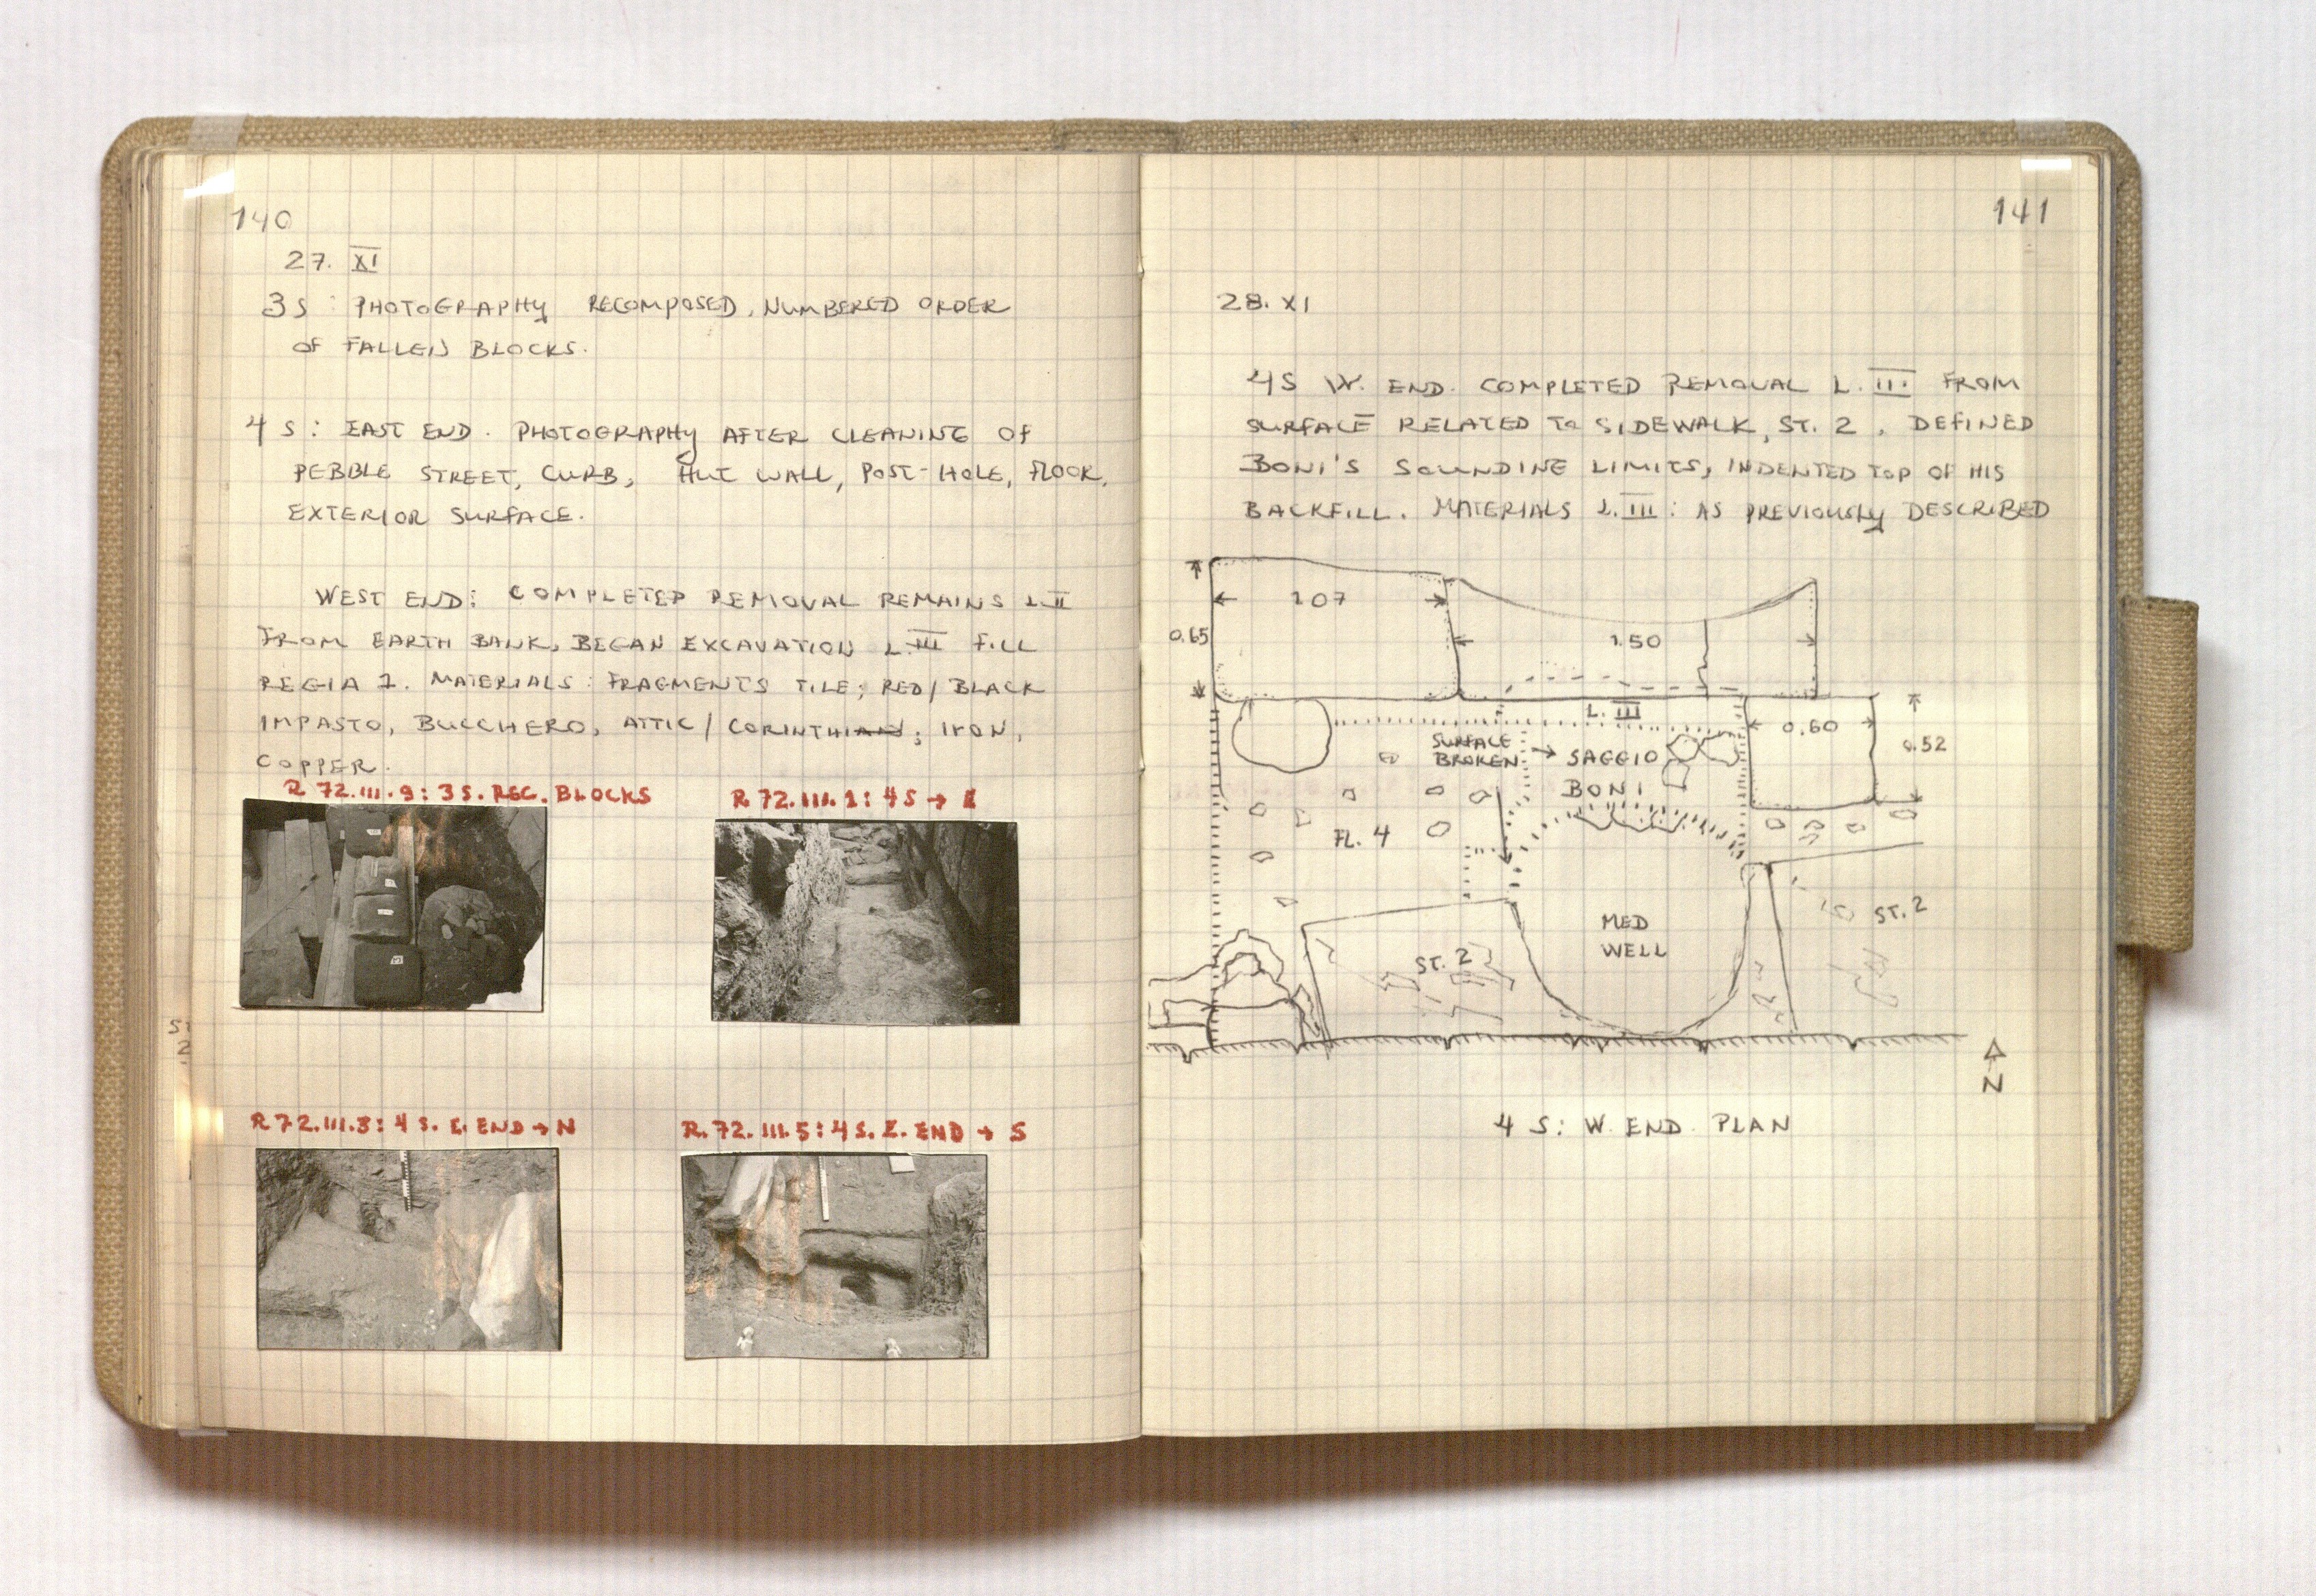 140
27. XI
3 S : PHOTOGRAPHY RECOMPOSED, NUMBERED ORDER
OF FALLEN BLOCKS.
4 S : EAST END. PHOTOGRAPHY AFTER CLEANING OF
PEBBLE STREET, CURB, HUT WALL, POST-HOLE, FLOOR,
EXTERIOR SURFACE.
WEST END: COMPLETED REMOVAL REMAINS L.II
FROM EARTH BANK, BEGAN EXCAVATION L.III FILL
REGIA 1. MATERIALS: FRAGMENTS TILE; RED/BLACK
IMPASTO, BUCCHERO, ATTIC/CORINTHIAN; IRON,
COPPER.
R 72.III.9: 3 S. REC. BLOCKS
R. 72.III.1: 4 S → E
R 72.III.3: 4 S. E. END → N
R. 72.III.5: 4 S. E. END → S
141
28. XI
4 S W. END. COMPLETED REMOVAL L. III FROM
SURFACE RELATED TO SIDEWALK, ST. 2. DEFINED
BONI'S SOUNDING LIMITS, INDENTED TOP OF HIS
BACKFILL. MATERIALS L.III: AS PREVIOUSLY DESCRIBED
1.07
0.65
1.50
L. III
0.60
0.52
SURFACE
BROKEN → SAGGIO
BONI
FL. 4
MED
WELL
ST. 2
ST. 2
N
4 S: W. END PLAN